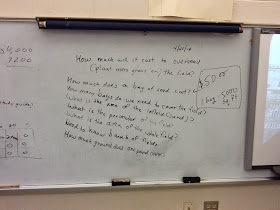 How much will it cost to overseed
(plant more grass on) the field?
How much does a bag of seed cost?
How many bags do we need to cover the field?
What is the area of the infield (sand)?
What is the perimeter of the field?
What is the area of the whole field?
Need to know # of fields
How much ground does one pound cover
$50.00
1 bag 5,000
sq. ft
3200